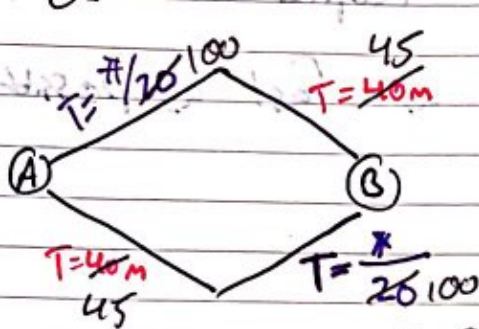 T= #/20 100
45
T=40m
A
B
T=40m
45
T= x/20 100